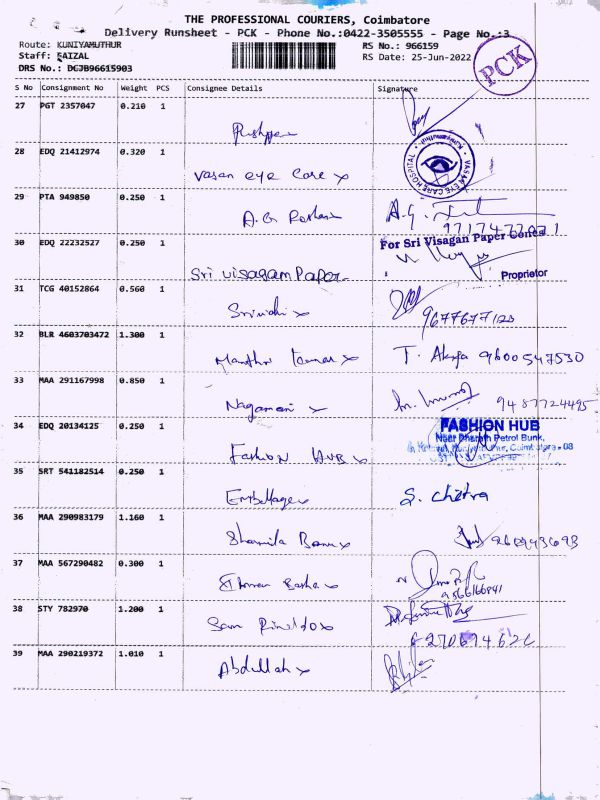 THE PROFESSIONAL COURIERS, Coimbatore
Delivery Runsheet - PCK - Phone No.:0422-3505555 - Page No.:3
Route: KUNIYAMUTHUR
RS No.: 966159
Staff: FAIZAL
RS Date: 25-Jun-2022
DRS No.: DCJB96615903
PCK
S No Consignment No Weight PCS Consignee Details Signature
27 PGT 2357047 0.210 1
28 EDQ 21412974 0.320 1
Vasan eye Care
VASAN EYE CARE HOSPITAL
29 PTA 949850 0.250 1
A.G
A.G.
30 EDQ 22232527 0.250 1
For Sri Visagan Paper
Sri visagam Paper
Proprietor
31 TCG 40152864 0.560 1
Srinidhi
9677677123
32 BLR 4603703472 1.300 1
Manthri Kumar
T. 9600547530
33 MAA 291167998 0.850 1
Nagamani
9487724495
34 EDQ 20134125 0.250 1
FASHION HUB
Near Bharath Petrol Bunk,
Fashion HUB
35 SRT 541182514 0.250 1
Embellage
S. Chitra
36 MAA 290983179 1.160 1
Sharmila Banu
37 MAA 567290482 0.300 1
Basha
38 STY 782970 1.200 1
Sam Rinaldo
39 MAA 290219372 1.010 1
Abdullah